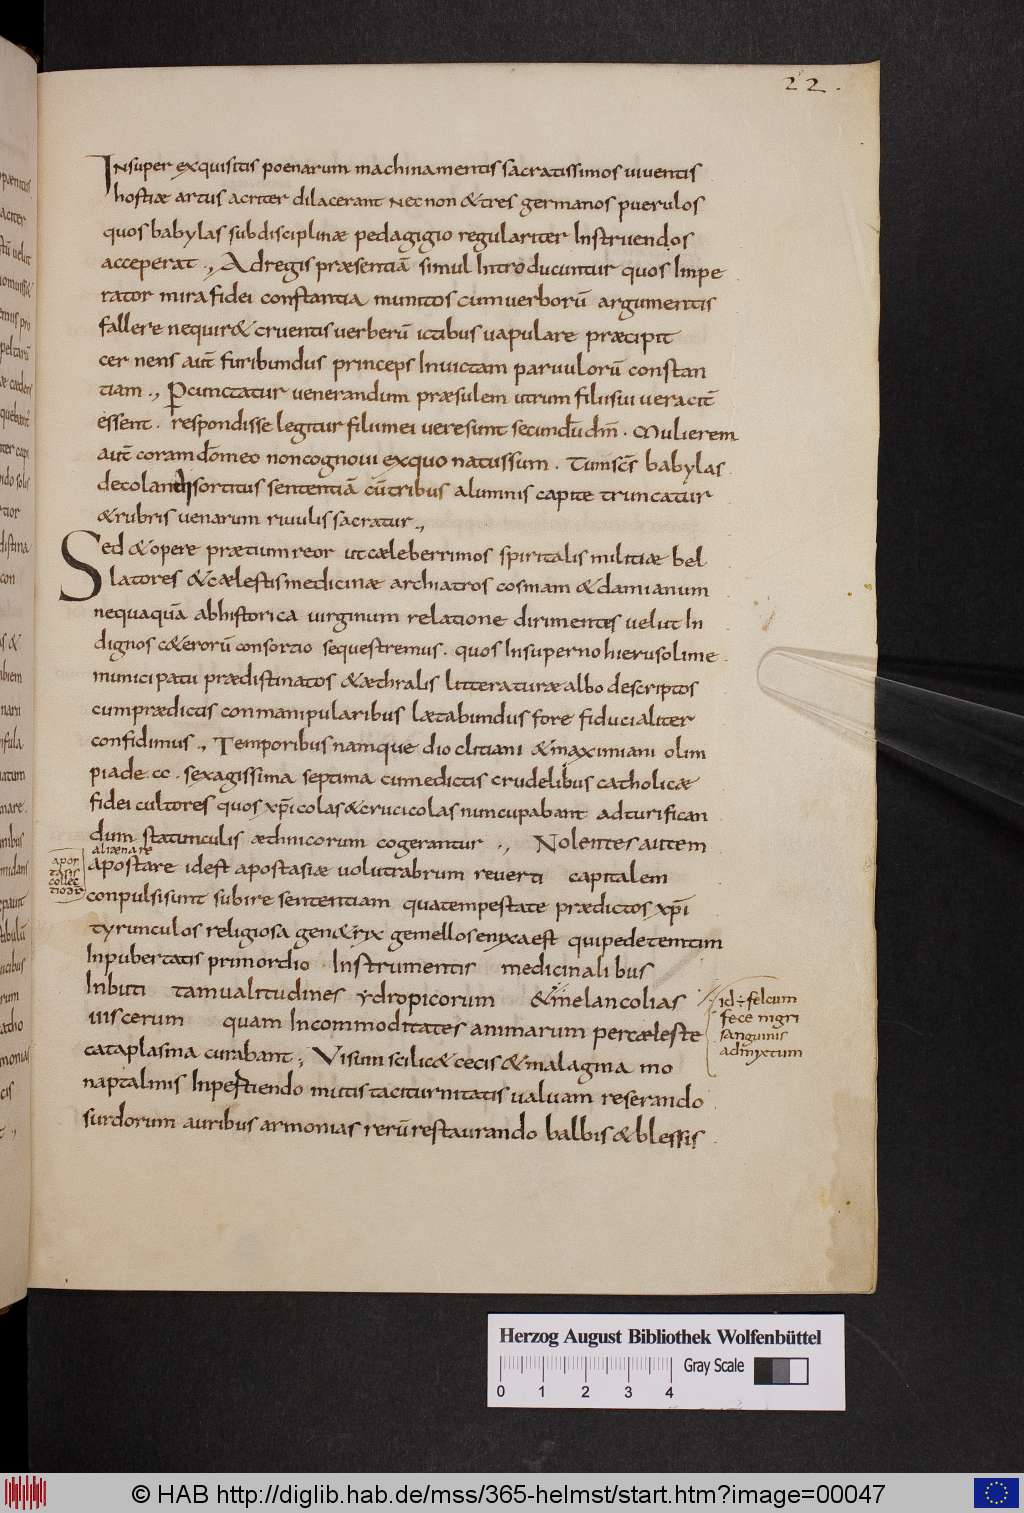 22.
Insuper exquisitis poenarum machinamentis sacratissimos viventis
hostiae artus acriter dilacerant nec non & tres germanos puerulos
quos babylas sub disciplinae pedagigio regulariter Instruendos
acceperat ., Ad regis praesentiā simul Introducuntur quos Impe
rator mira fidei constantia munitos cum verborū argumentis
fallere nequir& cruentis verberū ictibus vapulare praecipit
cer nens aut̄ furibundus princeps Invictam parvulorū constan
tiam ., Pcunctatur venerandum praesulem utrum filii sui veracit̄
essent . respondisse legitur filii mei vere sunt secundū dm̄ . Mulierem
aut̄ coram dōmeo non cognovi ex quo natus sum . Tum sc̄s babylas
decolandi sortitus sententiā cū tribus alumnis capite truncatur
& rubris venarum rivulis sacratur .,
Sed & opere praetium reor ut caeleberrimos spiritalis militiae bel
latores & caelestis medicinae archiatros cosmam & damianum
nequaquā ab historica virginum relatione dirimentes velut In
dignos c&erorū consortio sequestremus . quos In superno hierusolime
municipatu praedistinatos & aethralis litteraturae albo descriptos
cum praedictis conmanipularibus laetabundus fore fiducialiter
confidimus ., Temporibus namque dioclitiani & maximiani olim
piade cc . sexagissima septima cum edictis crudelibus catholicae
fidei cultores quos xp̄icolas & crucicolas nuncupabant ad turifican
dum statunculis aethnicorum cogerantur ., Nolentes autem
aliaenare
apostare id est apostasiae volutabrum reverti capitalem
apos
tasis
collec
tio dr̄
conpulsi sunt subire sententiam qua tempestate praedictos xp̄i
tyrunculos religiosa gen&rix gemellos enixa est qui pedetemtim
In pubertatis primordio Instrumentis medicinalibus
Inbuti tam valitudines ydropicorum & melancolias
id÷ fel cum
fece nigri
sanguinis
admyxtum
viscerum quam Incommoditates animarum per caeleste
cataplasma curabant ; Visum scilic& cecis & malagma mo
naptalmis Inpestiendo mutis taciturnitatis valvam reserando
surdorum auribus armonias rerū restaurando balbis & blessis
Herzog August Bibliothek Wolfenbüttel
Gray Scale
0 1 2 3 4
© HAB http://diglib.hab.de/mss/365-helmst/start.htm?image=00047